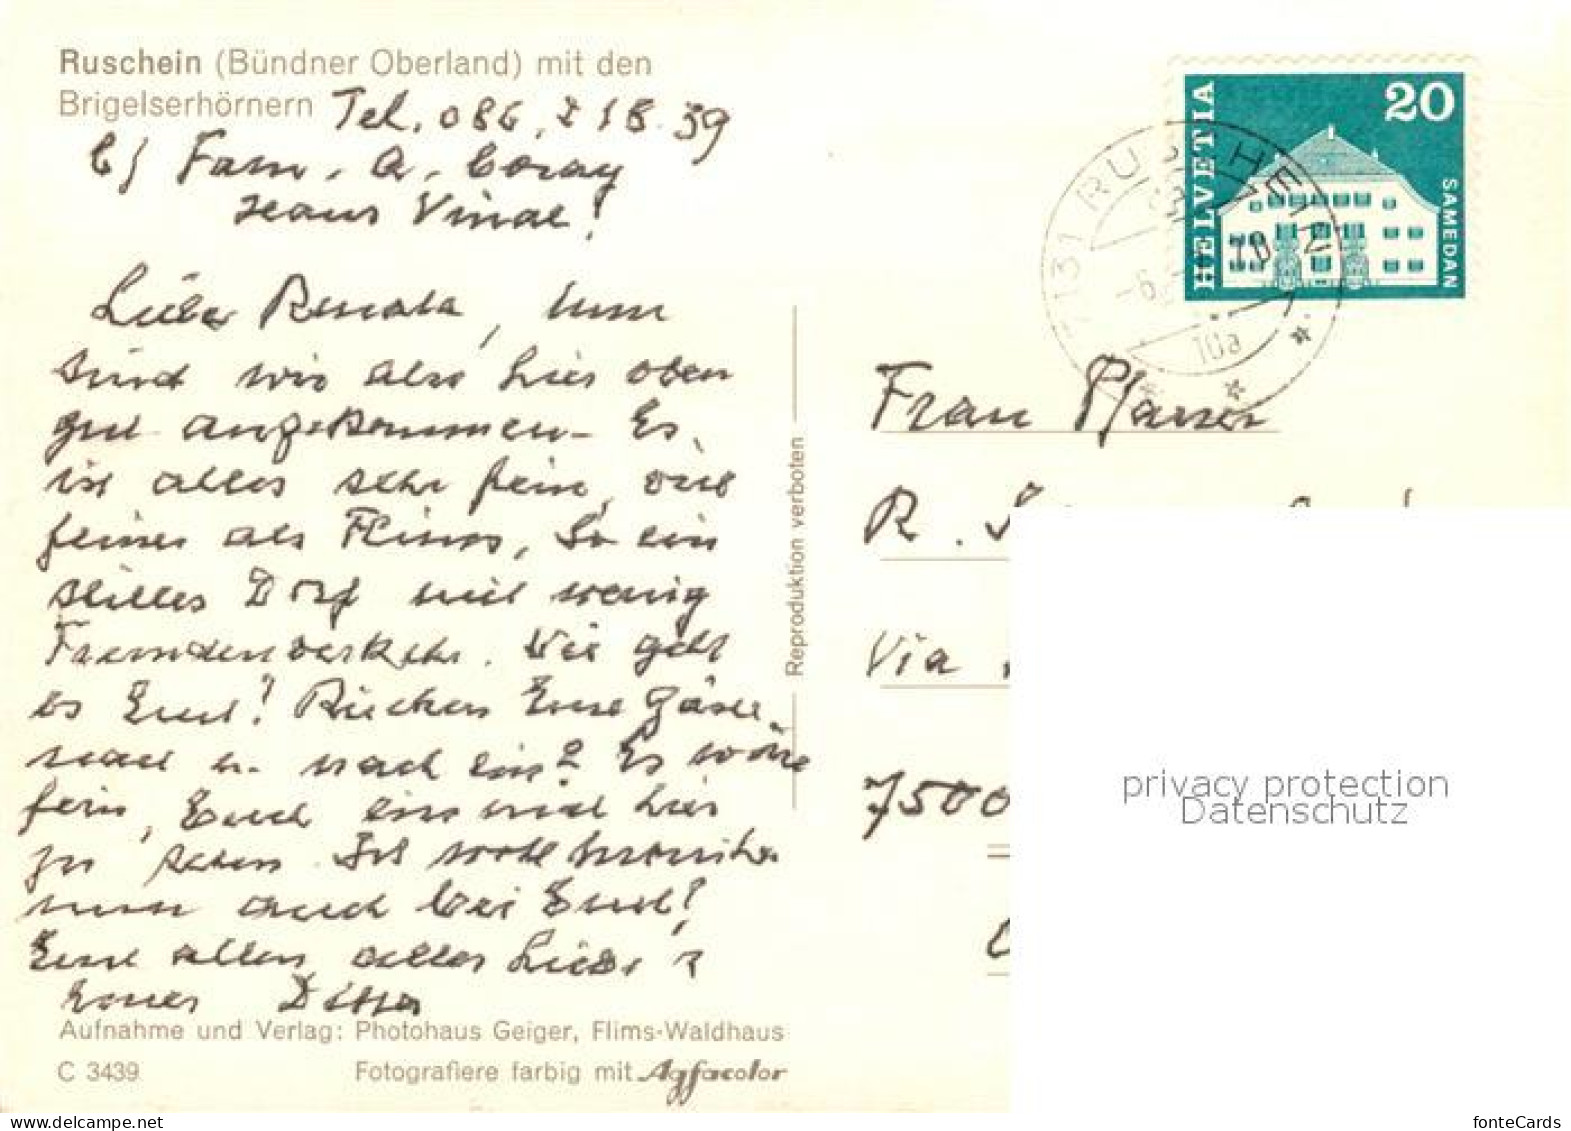 Ruschein (Bündner Oberland) mit den
Brigelserhörnern Tel. 086. 7 18 39
c/ Fam. A. Coray
Haus Vinal!
Liebe Renata, nun
sind wir also hier oben
gut angekommen. Es
ist alles sehr fein, viel
feiner als Flims, So ein
stilles Dorf mit wenig
Fremdenverkehr. Wie geht
es Euch? Rücken Eure Gäste
nach u. nach ein? Es wäre
fein, Euch einmal hier
zu sehen. Ist wohl
nun auch bei Euch!
Euch allen alles Liebe
Eure
Aufnahme und Verlag: Photohaus Geiger, Flims-Waldhaus
C 3439 Fotografiere farbig mit Agfacolor
Reproduktion verboten
HELVETIA
20
SAMEDAN
7131 RUSCHEIN
-6.
70
10a
Frau
R.
Via
7500
privacy protection
Datenschutz
fonteCards